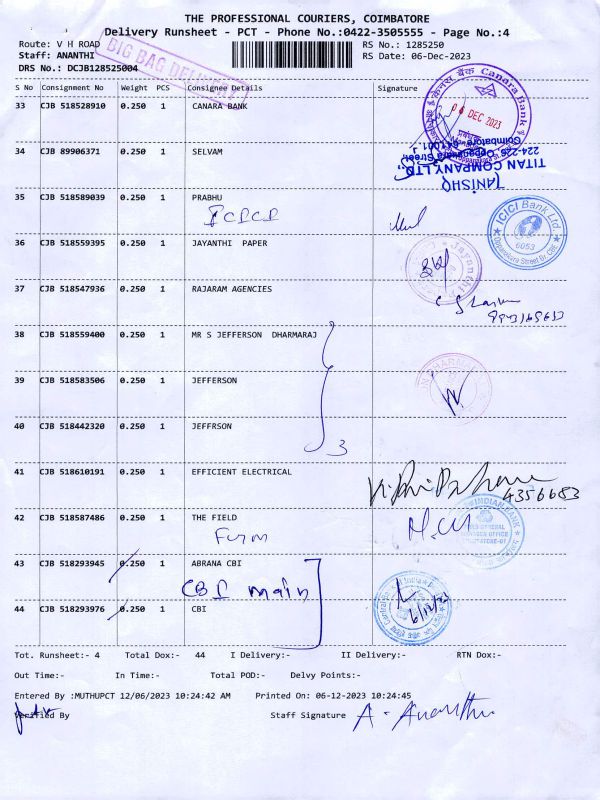 THE PROFESSIONAL COURIERS, COIMBATORE
Delivery Runsheet - PCT - Phone No.:0422-3505555 - Page No.:4
Route: V H ROAD
Staff: ANANTHI
DRS No.: DCJB128525004
BIG BAG DELIVERY
RS No.: 1285250
RS Date: 06-Dec-2023
S No Consignment No Weight PCS Consignee Details Signature
33 CJB 518528910 0.250 1 CANARA BANK
Canara Bank
DEC 2023
34 CJB 89906371 0.250 1 SELVAM
TITAN COMPANY LTD.,
TANISHQ
35 CJB 518589039 0.250 1 PRABHU
ICICI Bank Ltd
6053
36 CJB 518559395 0.250 1 JAYANTHI PAPER
37 CJB 518547936 0.250 1 RAJARAM AGENCIES
38 CJB 518559400 0.250 1 MR S JEFFERSON DHARMARAJ
39 CJB 518583506 0.250 1 JEFFERSON
40 CJB 518442320 0.250 1 JEFFRSON
3
41 CJB 518610191 0.250 1 EFFICIENT ELECTRICAL
4356683
42 CJB 518587486 0.250 1 THE FIELD
INDIAN BANK
43 CJB 518293945 0.250 1 ABRANA CBI
CBI main
44 CJB 518293976 0.250 1 CBI
Tot. Runsheet:- 4 Total Dox:- 44 I Delivery:- II Delivery:- RTN Dox:-
Out Time:- In Time:- Total POD:- Delvy Points:-
Entered By :MUTHUPCT 12/06/2023 10:24:42 AM Printed On: 06-12-2023 10:24:45
Verified By Staff Signature A. Ananthi